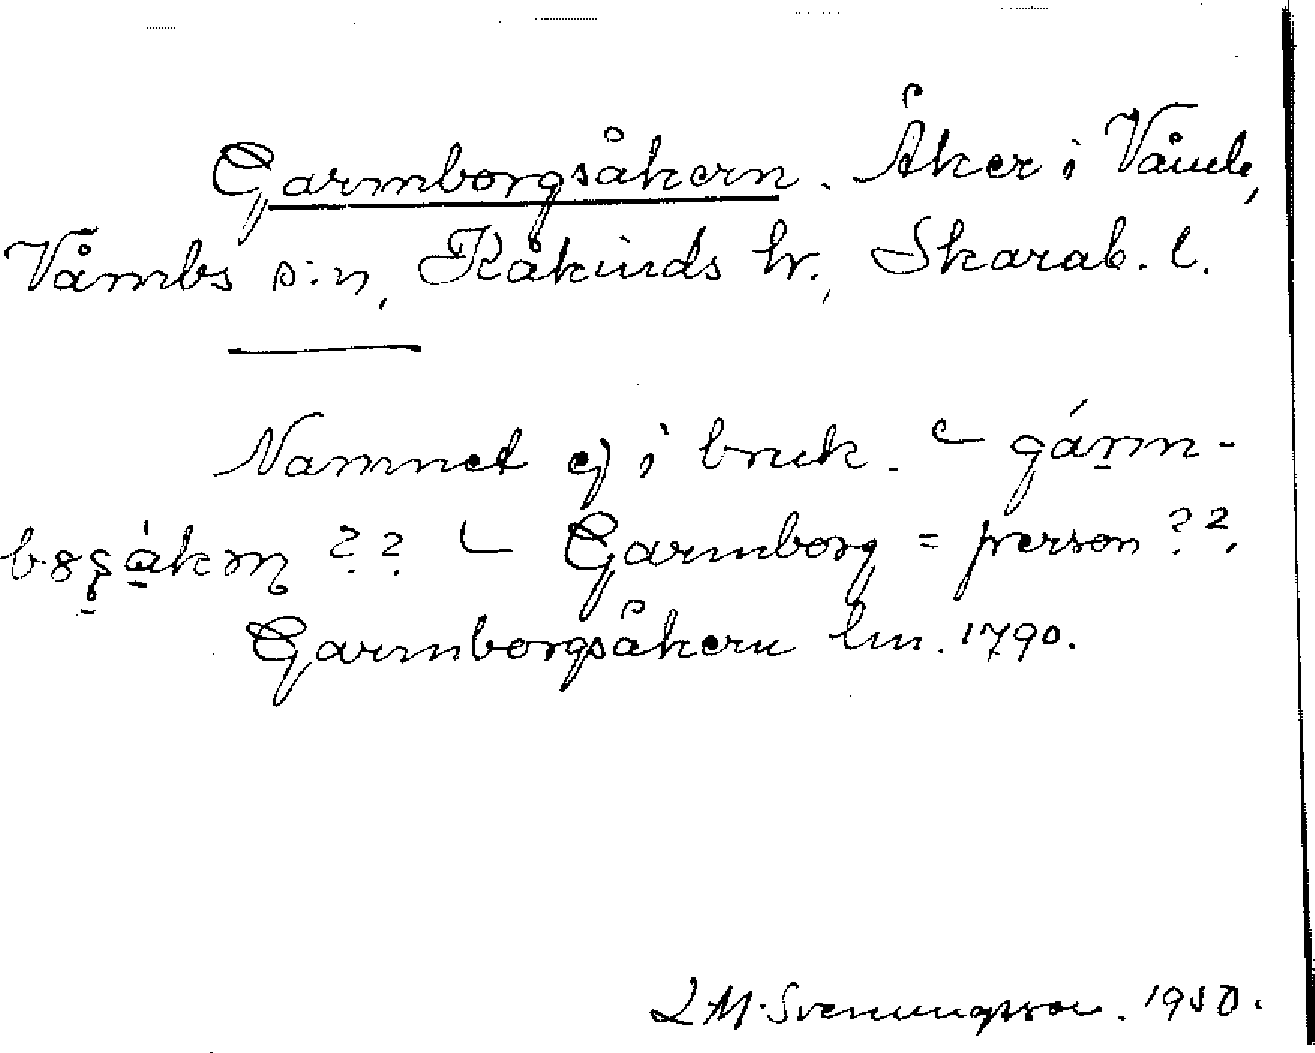 Garmborgsåkern. Åker i Våmb,
Våmbs s:n, Kåkinds hr., Skarab. l.
Namnet ej i bruk. – gárm-
?? – Garmborg = person??
Garmborgsåkern lm. 1790.
L M. Svenungsson. 1950.